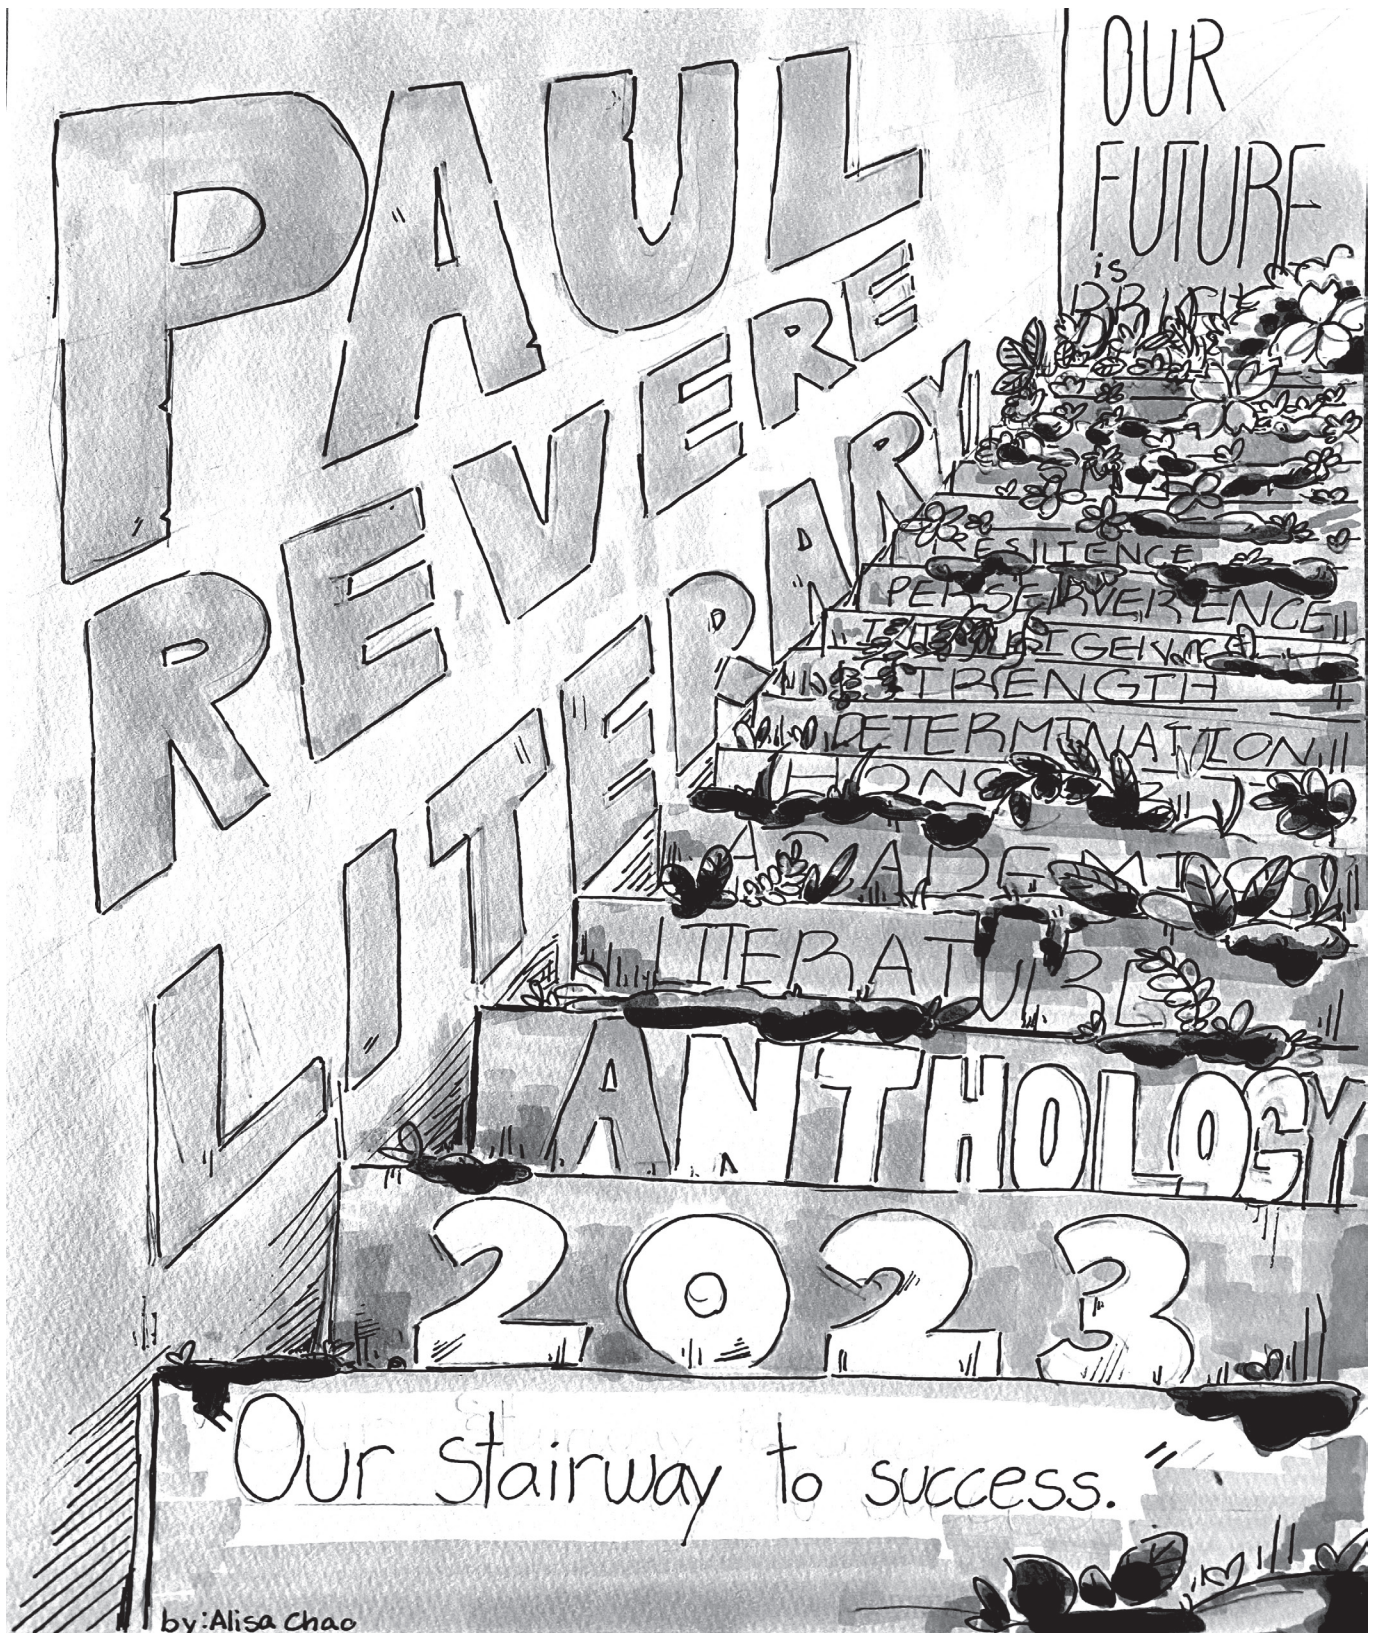 PAUL
REVERE
LITERARY
OUR
FUTURE
is
BRIGHT
RESILIENCE
PERSERVERENCE
INTELLIGENCE
STRENGTH
DETERMINATION
ACADEMICS
LITERATURE
ANTHOLOGY
2023
"Our stairway to success."
by: Alisa Chao